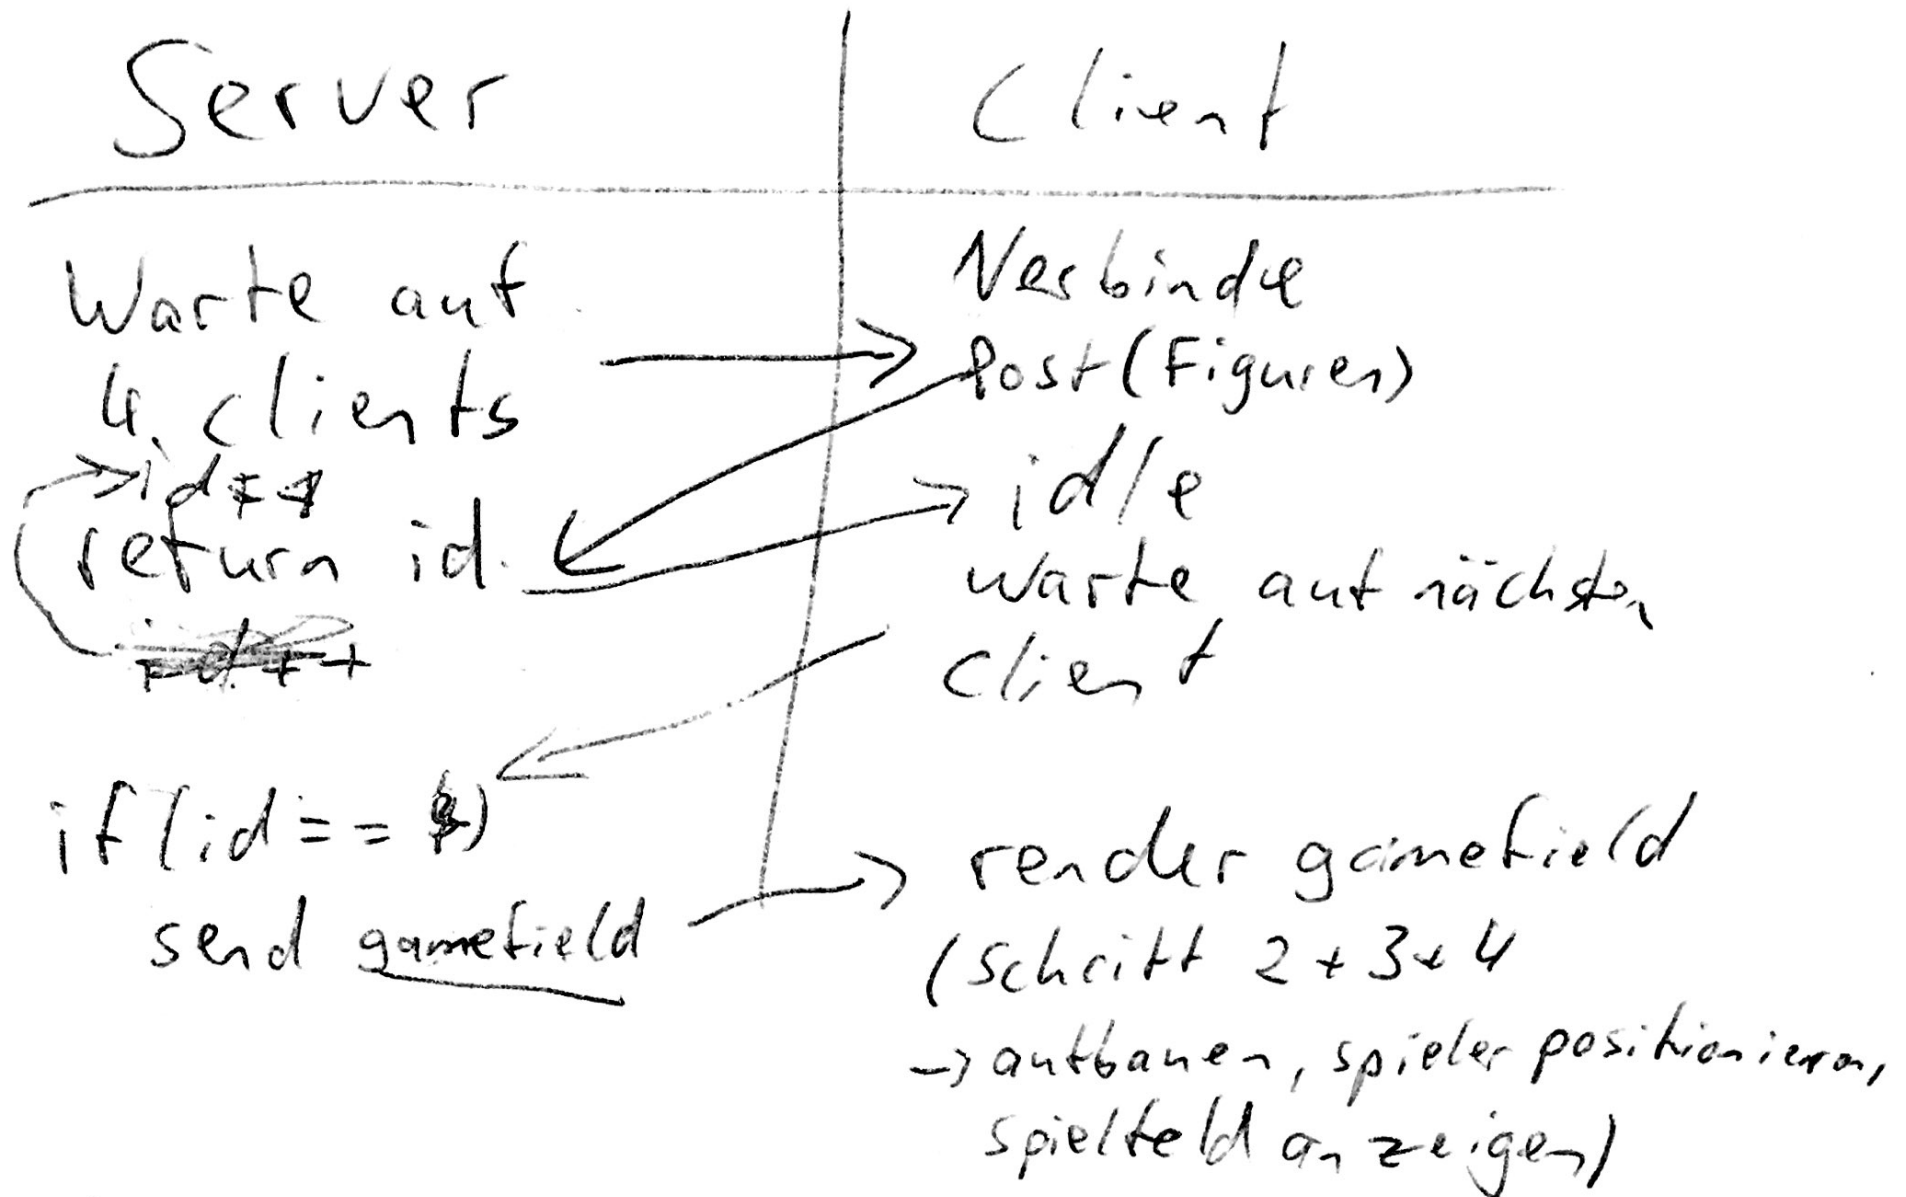 Server
Client
Warte auf
4 clients
id++
return id
if (id ==
send gamefield
Verbinde
Post(Figuren)
idle
warte auf nächsten
client
render gamefield
(Schritt 2+3+4
-> aufbauen, spieler positionieren,
spielfeld anzeigen)